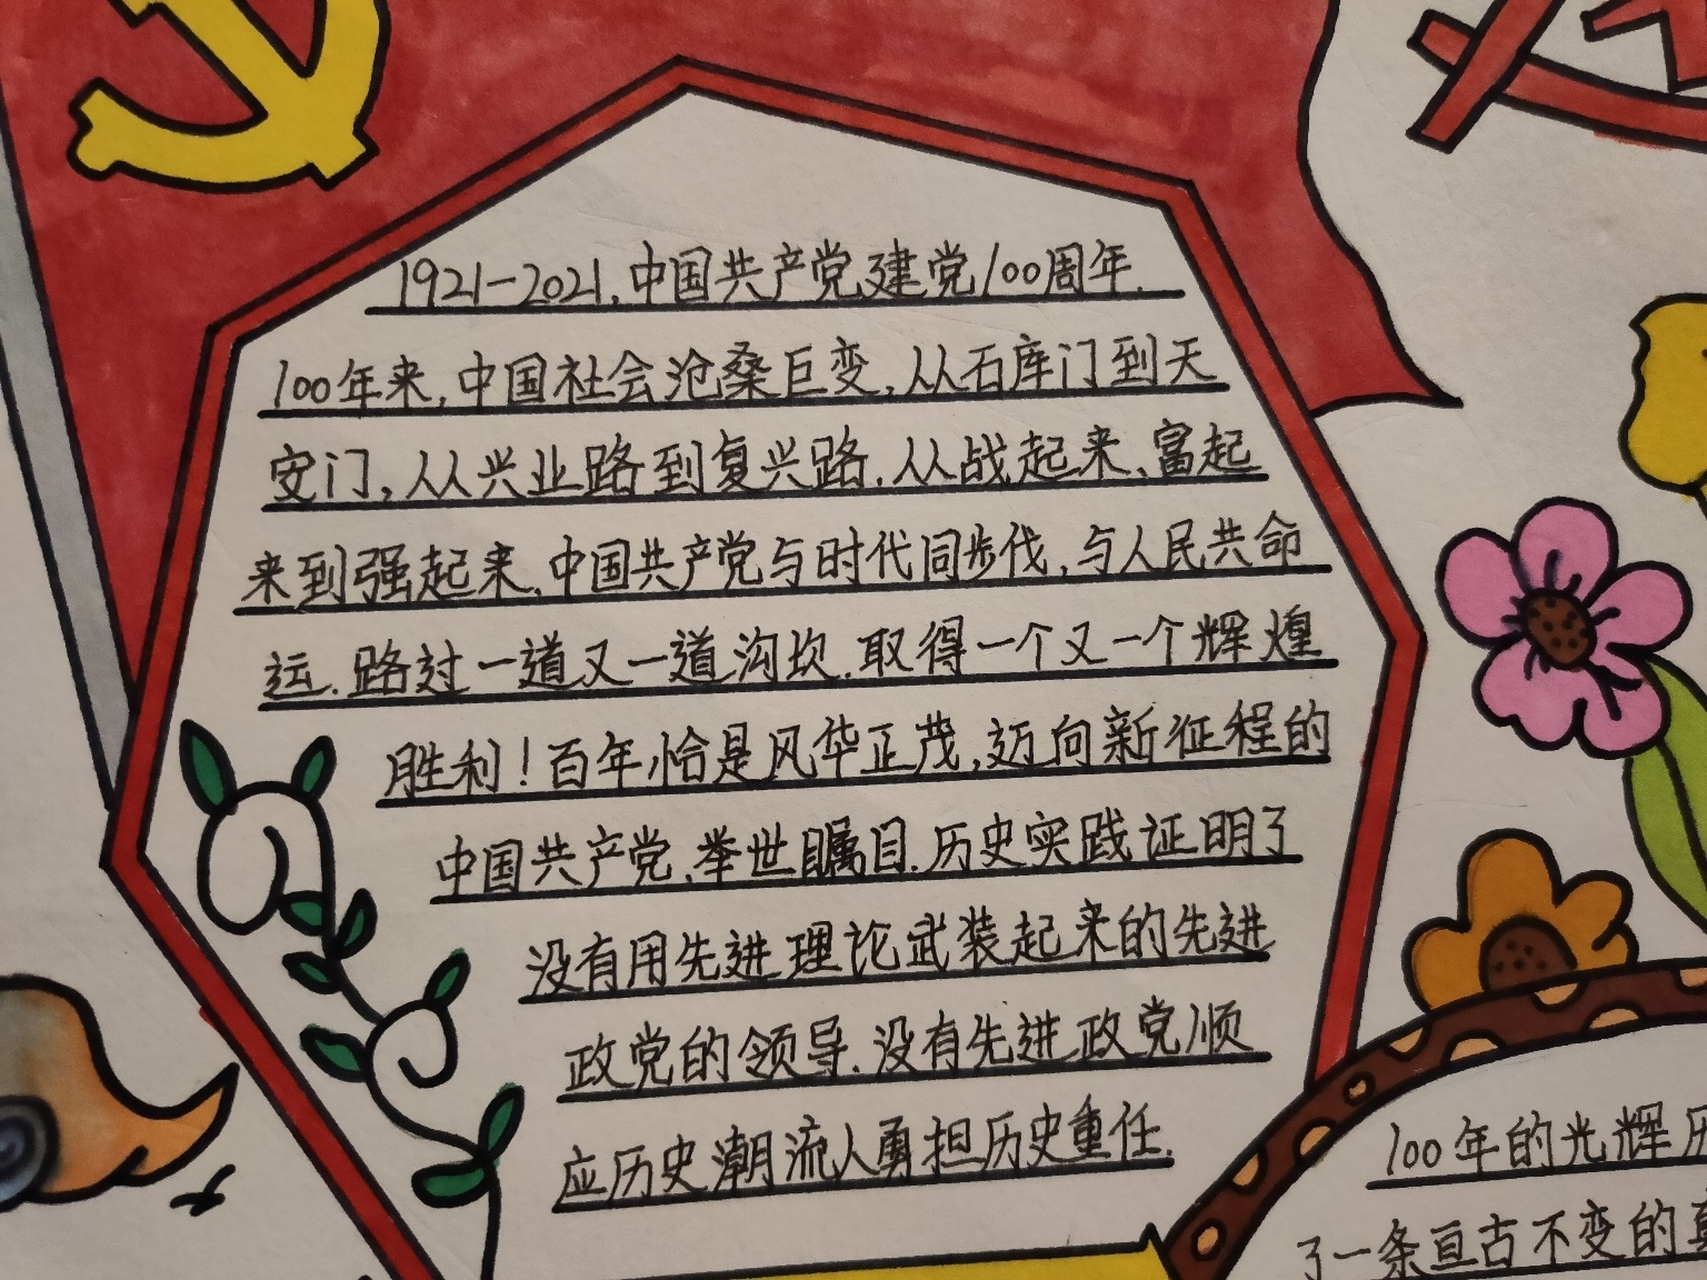 1921-2021,中国共产党建党100周年.
100年来,中国社会沧桑巨变,从石库门到天
安门,从兴业路到复兴路.从战起来、富起
来到强起来,中国共产党与时代同步伐,与人民共命
运.路过一道又一道沟坎.取得一个又一个辉煌
胜利!百年恰是风华正茂,迈向新征程的
中国共产党、举世瞩目.历史实践证明了
没有用先进理论武装起来的先进
政党的领导.没有先进政党顺
应历史潮流人勇担历史重任.
100年的光辉历
了一条亘古不变的真